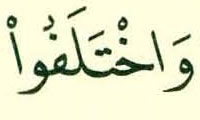 وَاخْتَلَفُواْ